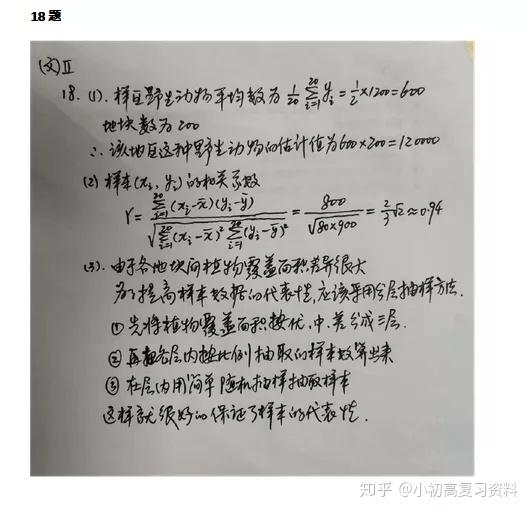 18题
(文)Ⅱ
18.(1).样区野生动物平均数为 1/20 ∑_{i=1}^{20} y_i = 1/2 ×1200=600
地块数为200
∴该地区这种野生动物的估计值为600×200=120000
(2)样本(x_i, y_i)的相关系数
r = ∑_{i=1}^{20}(x_i-x̄)(y_i-ȳ) / √(∑_{i=1}^{20}(x_i-x̄)² ∑_{i=1}^{20}(y_i-ȳ)²) = 800/√(80×900) = 2/3 √2 ≈ 0.94
(3).由于各地块间植物覆盖面积差异很大
为了提高样本数据的代表性,应该采用分层抽样方法.
①先将植物覆盖面积按优、中、差分成三层.
②再把各层内按比例抽取的样本数算出来
③在层内用简单随机抽样抽取样本
这样就很好的保证了样本的代表性.
知乎 @小初高复习资料